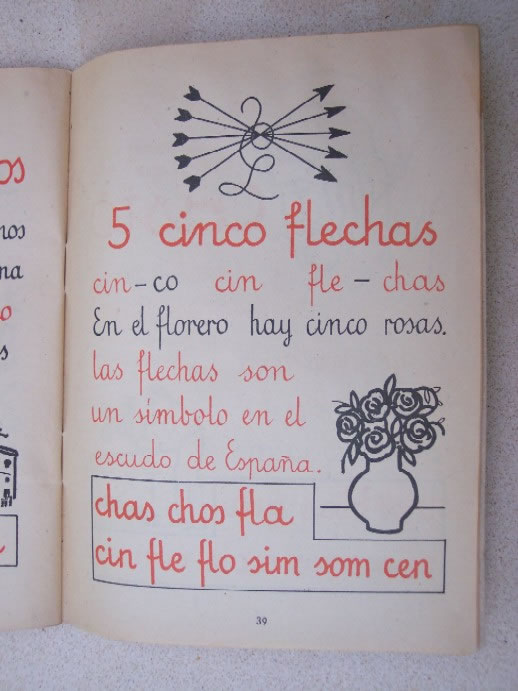 os
nos
na
o
s
5 cinco flechas
cin-co cin fle - chas
En el florero hay cinco rosas.
las flechas son
un símbolo en el
escudo de España.
chas chos fla
cin fle flo sim som cen
39